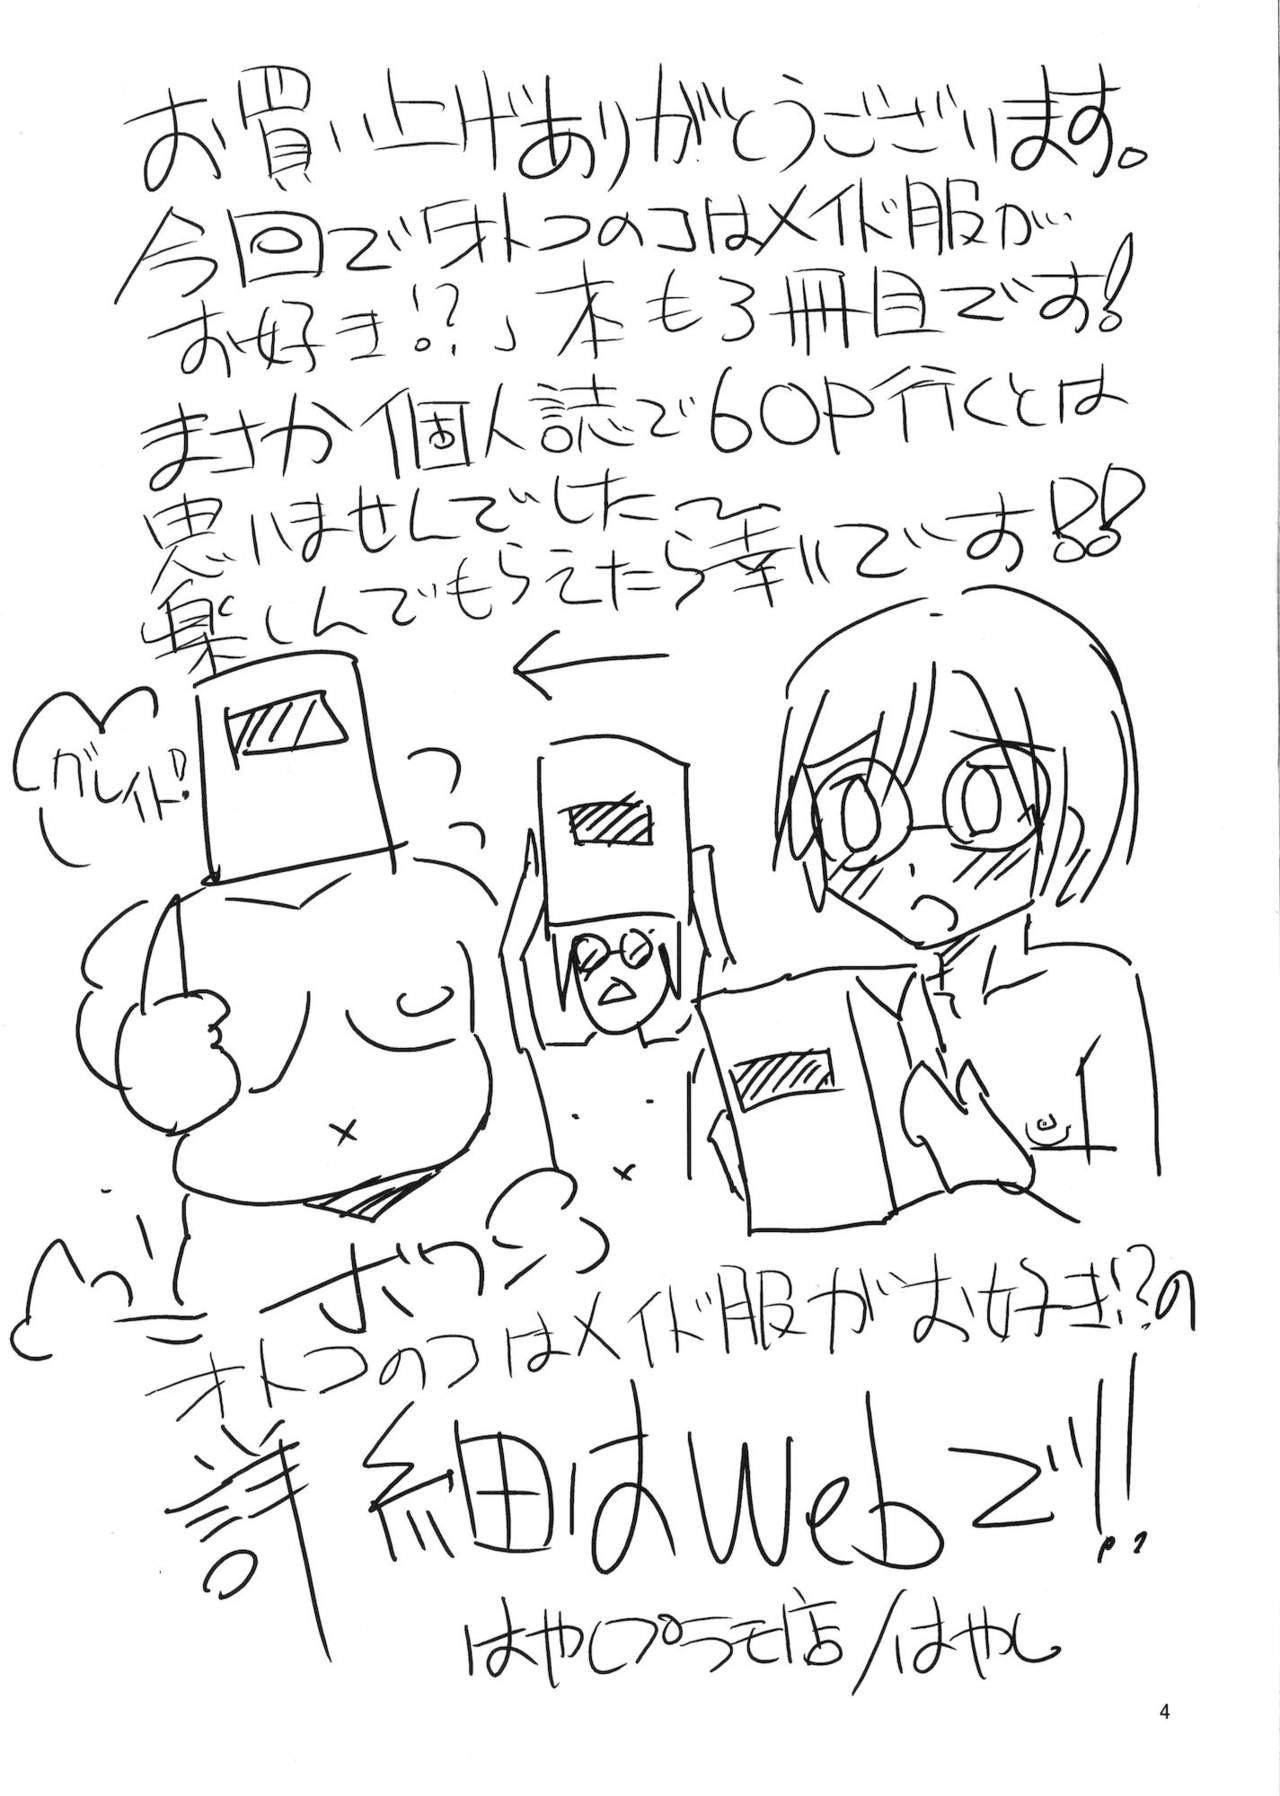 お買い上げありがとうございます。
今回で「オトコのコはメイド服が
お好き!?」本も3冊目です!
まさか個人誌で60P行くとは
思いませんでした〜
楽しんでもらえたら幸いです!!
グレイト!
ボワン
オトコのコはメイド服がお好き!?の
詳細はWebで!!
はやしプラモ店/はやし
4